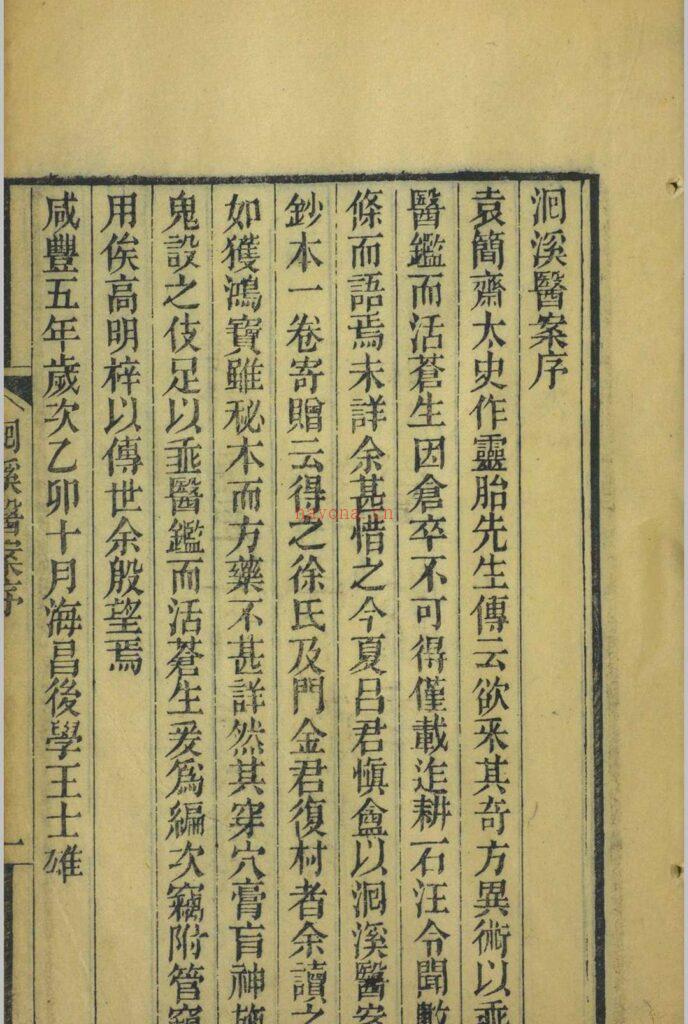 洄溪醫案序
袁簡齋太史作靈胎先生傳云欲采其奇方異術以垂
醫鑑而活蒼生因倉卒不可得僅載迮耕石汪令聞數
條而語焉未詳余甚惜之今夏呂君愼盦以洄溪醫案
鈔本一卷寄贈云得之徐氏及門金君復村者余讀之
如獲鴻寶雖秘本而方藥不甚詳然其穿穴膏肓神施
鬼設之伎足以垂醫鑑而活蒼生爰爲編次竊附管窺
用俟高明梓以傳世余殷望焉
咸豐五年歲次乙卯十月海昌後學王士雄
洄溪醫案序
一
nayona.cn